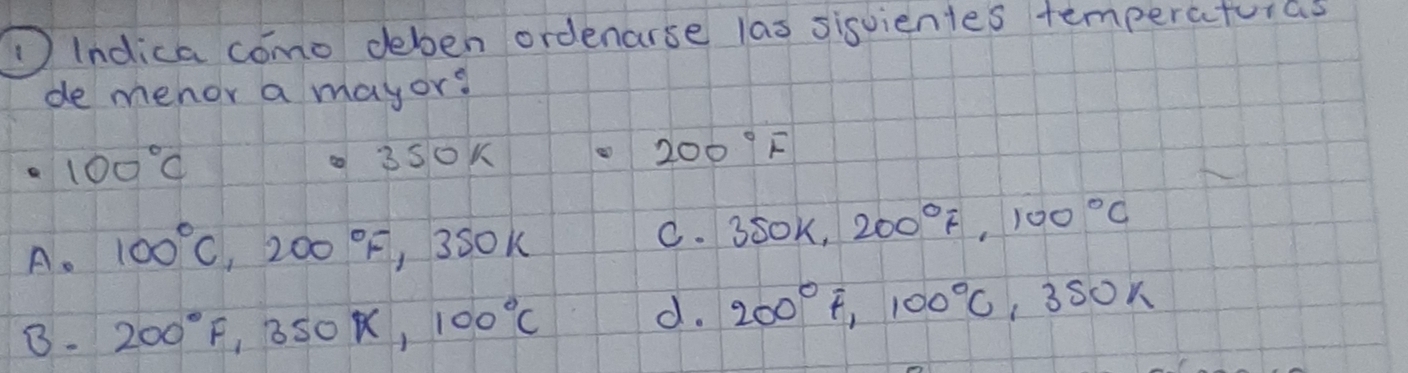 ① Indica cómo deben ordenarse las siguientes temperaturas
de menor a mayor:
• 100°C • 350K • 200°F
A. 100°C, 200°F, 350K C. 350K, 200°F, 100°C
B. 200°F, 350K, 100°C d. 200°F, 100°C, 350K